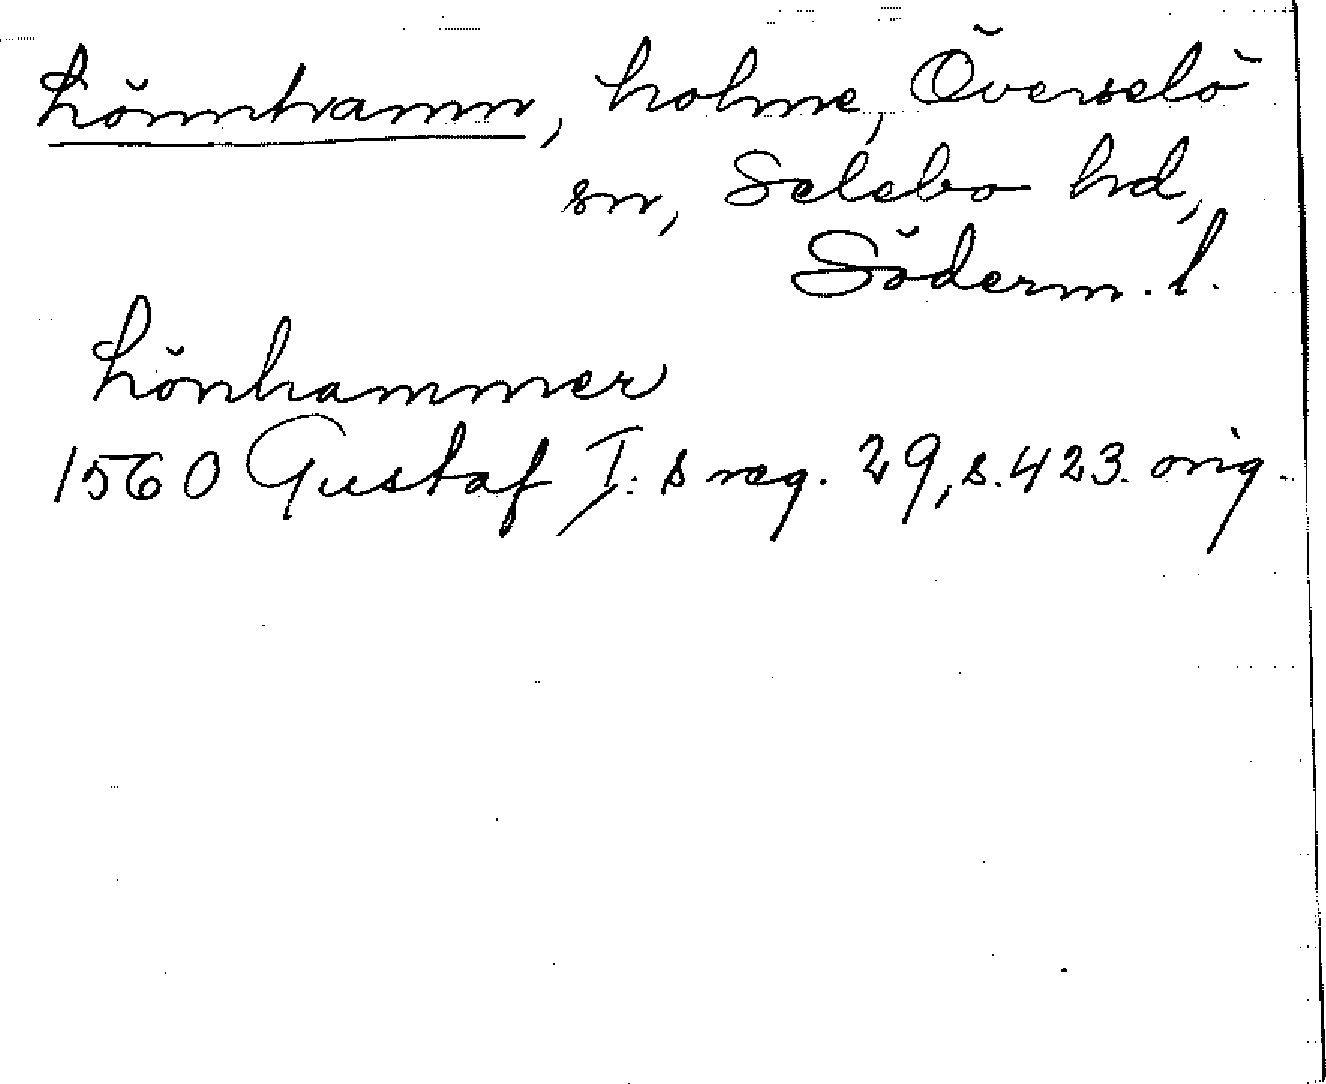 Lönnhamn, holme, Överselö
sn, Selebo hd,
Söderm. l.
Lönhammer
1560 Gustaf I:s reg. 29, s. 423. orig.